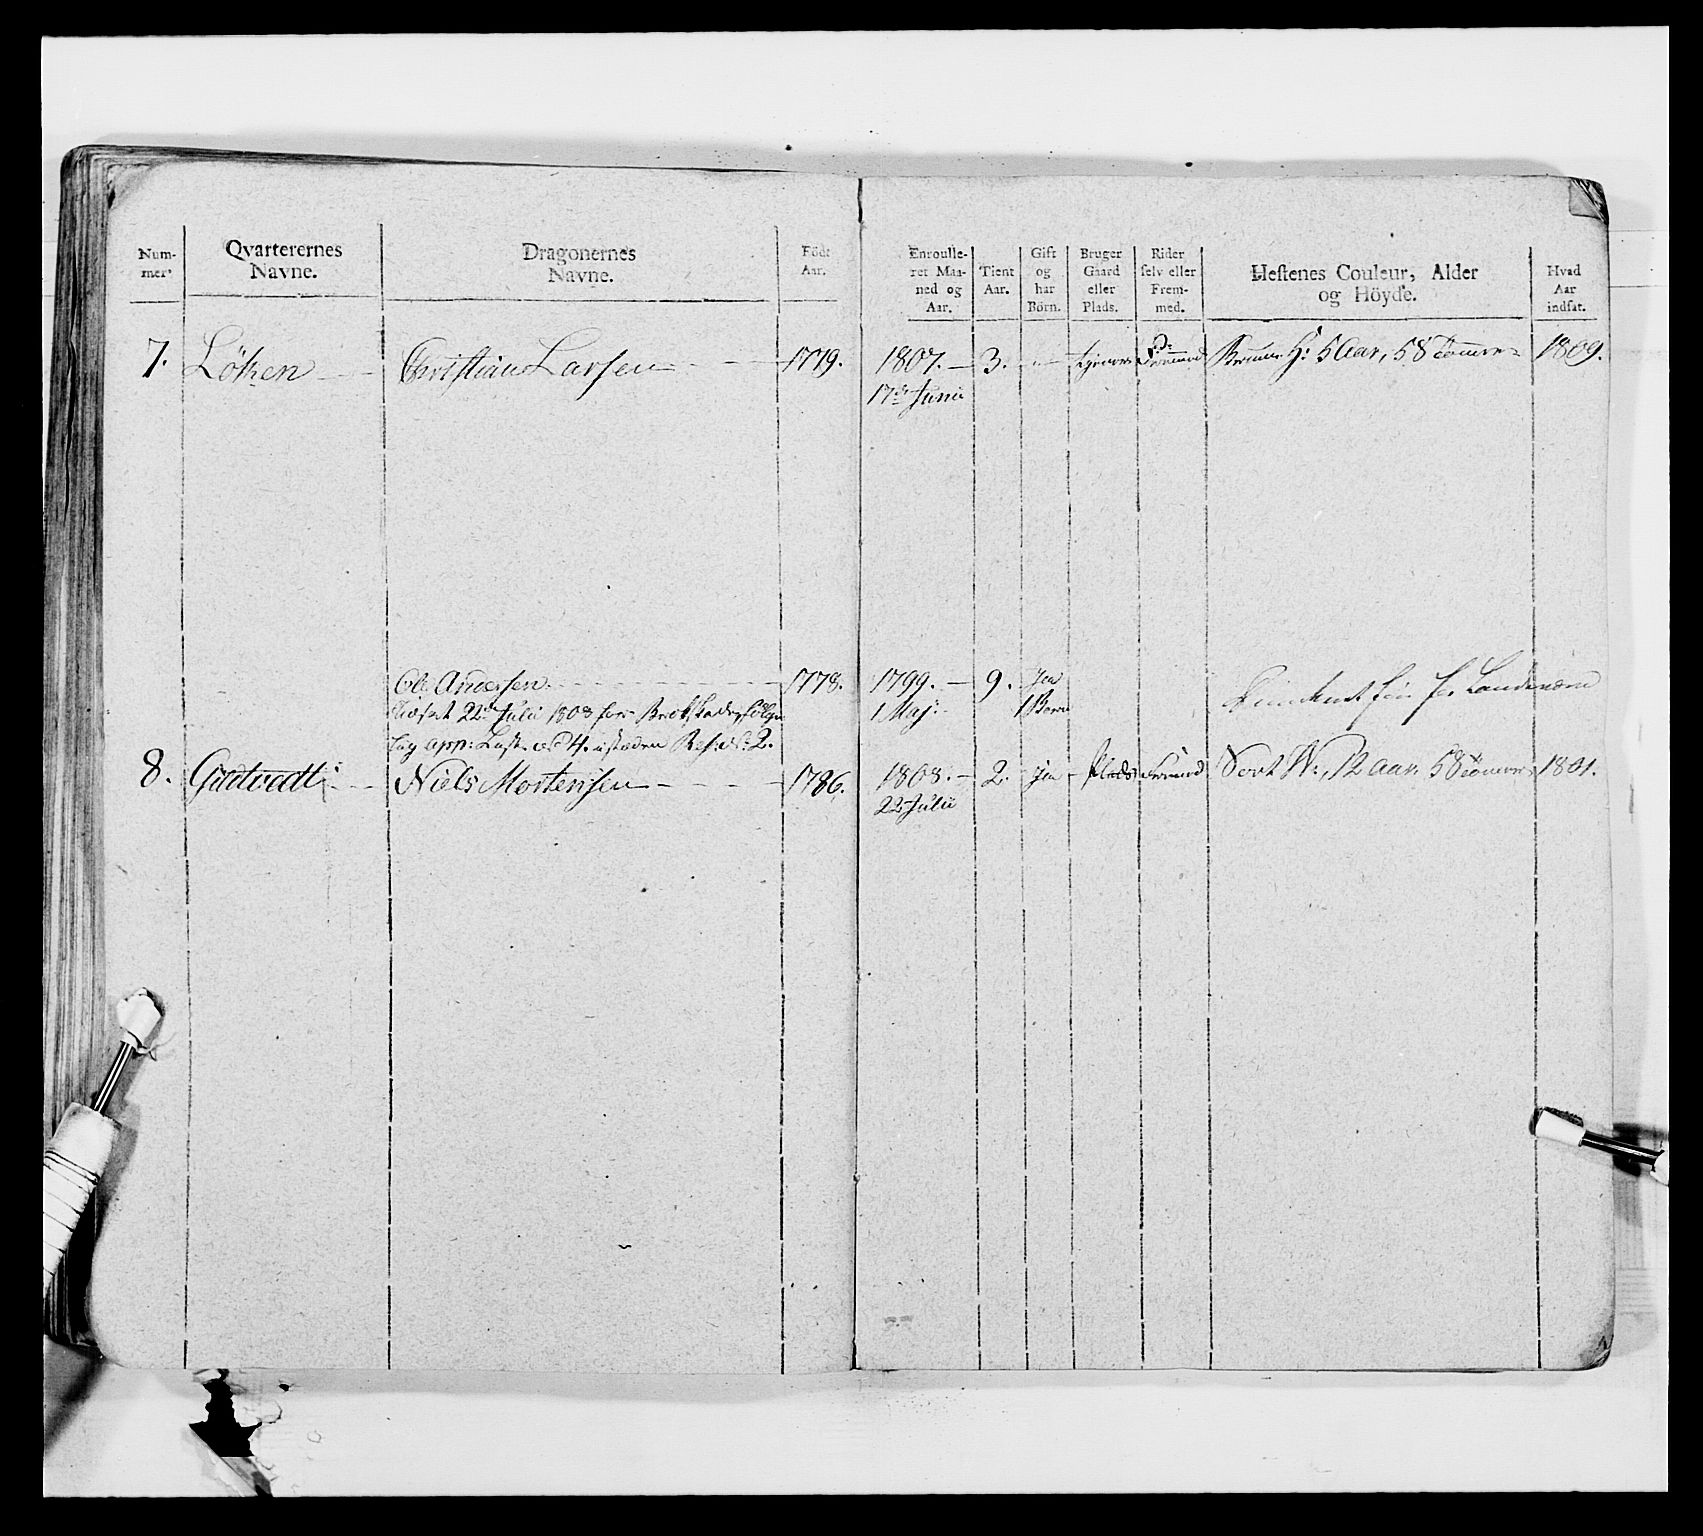 Num-
mer.
Qvarterernes
Navne.
Dragonernes
Navne.
Födt
Aar.
Enroulle-
ret Maa-
ned og
Aar.
Tient
Aar.
Gift
og
har
Børn.
Bruger
Gaard
eller
Plads.
Rider
selv eller
Frem-
med.
Hestenes Couleur, Alder
og Höyde.
Hvad
Aar
indsat.
7. Löken Christian Larsen 1779. 1807. 3. Fremmed H: 5 Aar, 58 Tommer 1809.
17de Junii
Ole Andersen 1778. 1799. 9. Ja
22de Julii 1808 for
1 Maji 1 Barn
app: No 4.
8. Niels Mortensen 1786. 1808. 2. Ja Plads Fremmed Sort 12 Aar, 58 Tommer 1801.
22 Julii